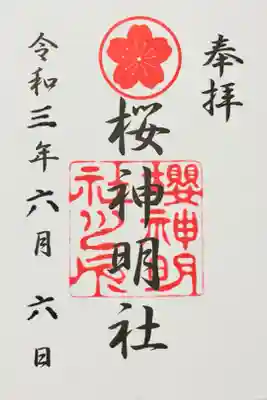 奉拝
桜神明社
櫻神明
社之印
令和三年六月六日